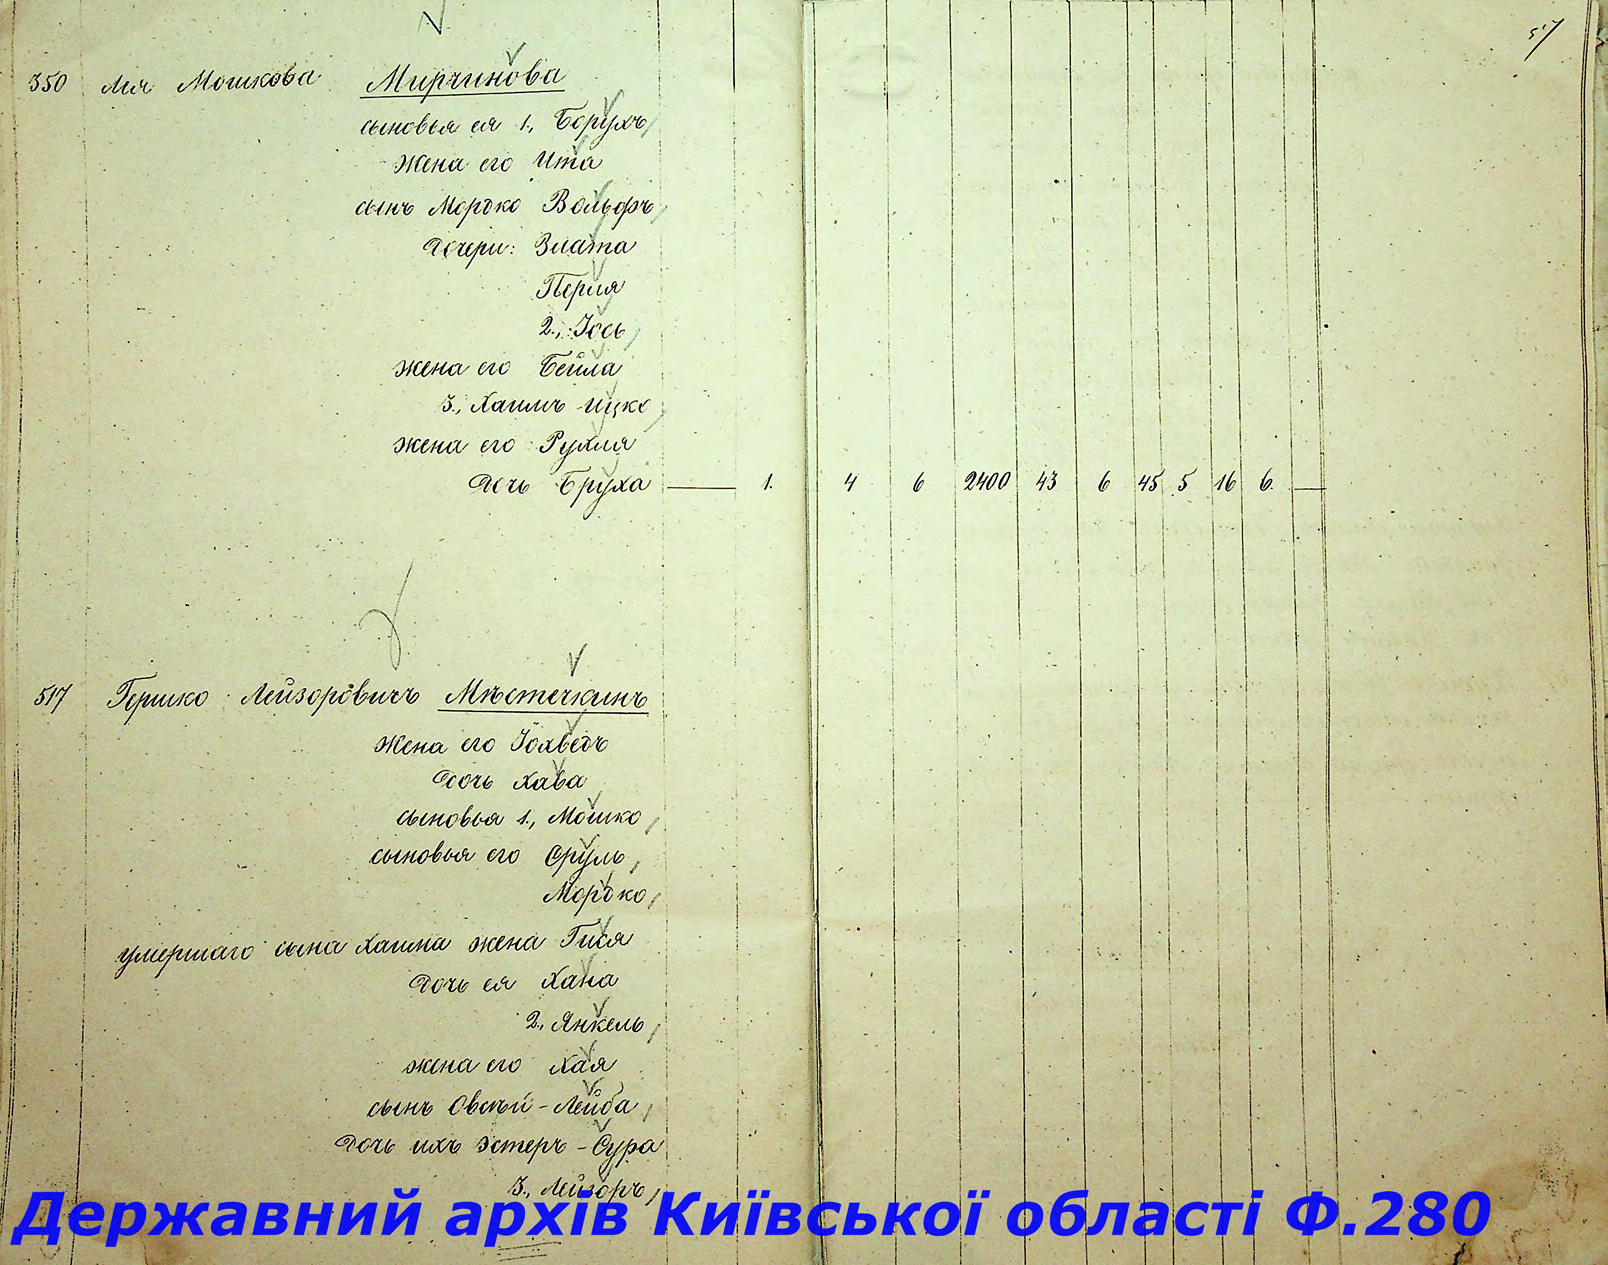 57
350 Лея Мошкова Мирчинова
сыновья ея 1., Борухъ
жена его Ита
сынъ Мордко Вольфъ
дочери: Злата
Перля
2., Іось
жена его Бейла
3., Хаимъ-Ицко
жена его Рухля
дочь Бруха — 1. 4 6 2400 43 6 45 5 16 6. —
517 Гершко Лейзоровичъ Мѣстечкинъ
жена его Іохведъ
дочь Хава
сыновья 1., Мошко
сыновья его Сруль
Мордко
умершаго сына Хаима жена Гися
дочь ея Хана
2., Янкель
жена его Хая
сынъ Овсѣй-Лейба
дочь ихъ Эстеръ-Сура
3., Лейзоръ
Державний архів Київської області Ф.280